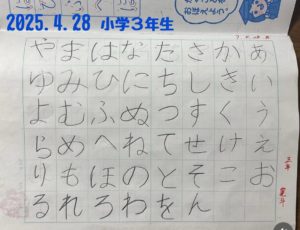 2025.4.28 小学3年生
おぼえよう。
あいうえお
かきくけこ
さしすせそ
たちつてと
なにぬねの
はひふへほ
まみむめも
やゆよらり
るれろわをん